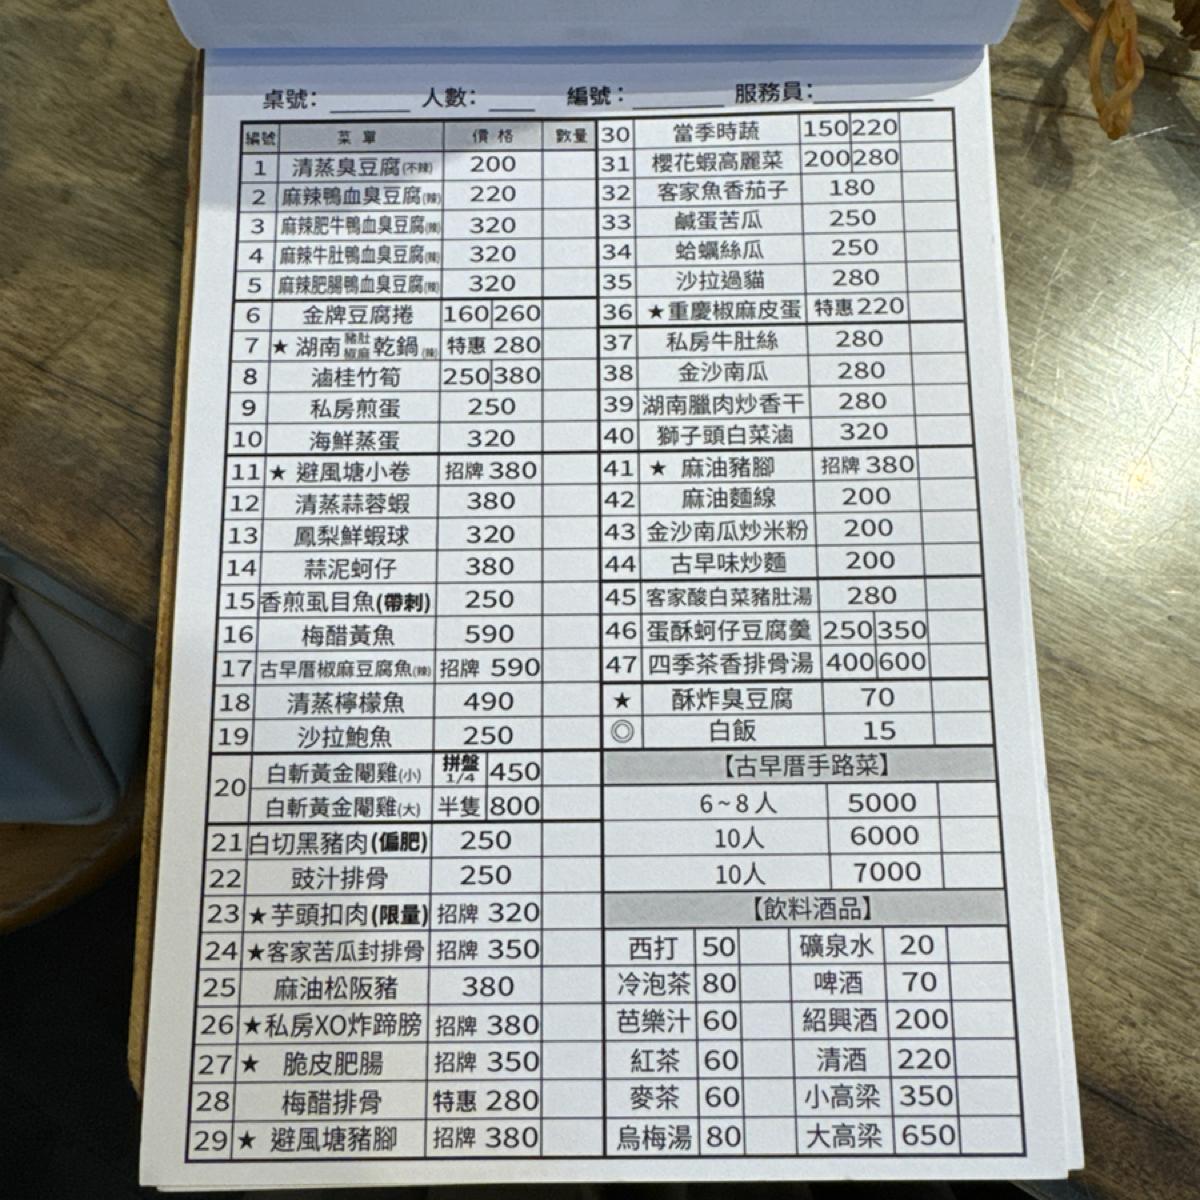 桌號： 人數： 編號： 服務員：
編號 菜單 價格 數量
1 清蒸臭豆腐(不辣) 200
2 麻辣鴨血臭豆腐(辣) 220
3 麻辣肥牛鴨血臭豆腐(辣) 320
4 麻辣牛肚鴨血臭豆腐(辣) 320
5 麻辣肥腸鴨血臭豆腐(辣) 320
6 金牌豆腐捲 160 260
7 ★ 湖南豬肚椒麻乾鍋(辣) 特惠 280
8 滷桂竹筍 250 380
9 私房煎蛋 250
10 海鮮蒸蛋 320
11 ★ 避風塘小卷 招牌 380
12 清蒸蒜蓉蝦 380
13 鳳梨鮮蝦球 320
14 蒜泥蚵仔 380
15 香煎虱目魚(帶刺) 250
16 梅醋黃魚 590
17 古早厝椒麻豆腐魚(辣) 招牌 590
18 清蒸檸檬魚 490
19 沙拉鮑魚 250
20 白斬黃金閹雞(小) 拼盤 1/4 450
白斬黃金閹雞(大) 半隻 800
21 白切黑豬肉(偏肥) 250
22 豉汁排骨 250
23 ★芋頭扣肉(限量) 招牌 320
24 ★客家苦瓜封排骨 招牌 350
25 麻油松阪豬 380
26 ★私房XO炸蹄膀 招牌 380
27 ★ 脆皮肥腸 招牌 350
28 梅醋排骨 特惠 280
29 ★ 避風塘豬腳 招牌 380
30 當季時蔬 150 220
31 櫻花蝦高麗菜 200 280
32 客家魚香茄子 180
33 鹹蛋苦瓜 250
34 蛤蠣絲瓜 250
35 沙拉過貓 280
36 ★重慶椒麻皮蛋 特惠 220
37 私房牛肚絲 280
38 金沙南瓜 280
39 湖南臘肉炒香干 280
40 獅子頭白菜滷 320
41 ★ 麻油豬腳 招牌 380
42 麻油麵線 200
43 金沙南瓜炒米粉 200
44 古早味炒麵 200
45 客家酸白菜豬肚湯 280
46 蛋酥蚵仔豆腐羹 250 350
47 四季茶香排骨湯 400 600
★ 酥炸臭豆腐 70
◎ 白飯 15
【古早厝手路菜】
6~8人 5000
10人 6000
10人 7000
【飲料酒品】
西打 50 礦泉水 20
冷泡茶 80 啤酒 70
芭樂汁 60 紹興酒 200
紅茶 60 清酒 220
麥茶 60 小高梁 350
烏梅湯 80 大高梁 650